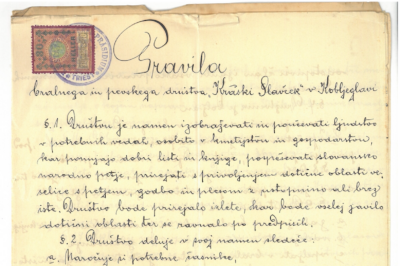 Pravila
bralnega in pevskega društva „Kraški Slavček" v Kobljeglavi
§. 1. Društvu je namen izobraževati in poučevati ljudstvo
v potrebnih vedah, osobito v kmetijstvu in gospodarstvu,
kar pomajo dobri liste in knjige, popevati slovansko
narodno petje, prirejati s privoljenjem dotične oblasti ve-
selice s petjem, godbo in plesom z ustopnino ali brez
iste. Društvo bode prirejalo izlete, kar bode vselej javilo
dotični oblasti ter se ravnalo po predpisih.
§. 2. Društvo deluje v svoj namen sledeče:
a. Naročuje si potrebne časnike,